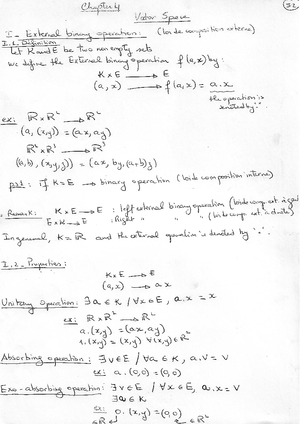 Chapter 4
Vector Space
I - External binary operation: (loi de composition externe)
I.1. Definition
Let K and E be two non empty sets
we define the External binary operation f(a,x) by:
K × E ⟶ E
(a, x) ⟶ f(a,x) = a.x
the operation is
denoted by "."
ex: ℝ × ℝ² ⟶ ℝ²
(a, (x,y)) = (ax, ay)
ℝ² × ℝ² ⟶ ℝ³
((a,b), (x,y)) = (ax, by, (a+b)y)
: if K = E → binary operation (loi de composition interne)
Remark: K × E → E : left external binary operation (loi de comp. ext à gauche)
E × K → E : Right " " " (loi de comp. ext à droite)
In general, K = ℝ and the external operation is denoted by "."
I.2. Properties:
K × E ⟶ E
(a, x) ⟶ ax
Unitary operation: ∃ a ∈ K / ∀x ∈ E, a.x = x
ex: ℝ × ℝ² ⟶ ℝ²
a.(x,y) = (ax, ay)
1.(x,y) = (x,y) ∀(x,y) ∈ ℝ²
Absorbing operation: ∃ v ∈ E / ∀a ∈ K, a.v = v
ex: a.(0,0) = (0,0)
Exo-absorbing operation: ∃ v ∈ E / ∀x ∈ E, a.x = v
∃ a ∈ K
ex: 0.(x,y) = (0,0)
∈ ℝ ∈ ℝ²